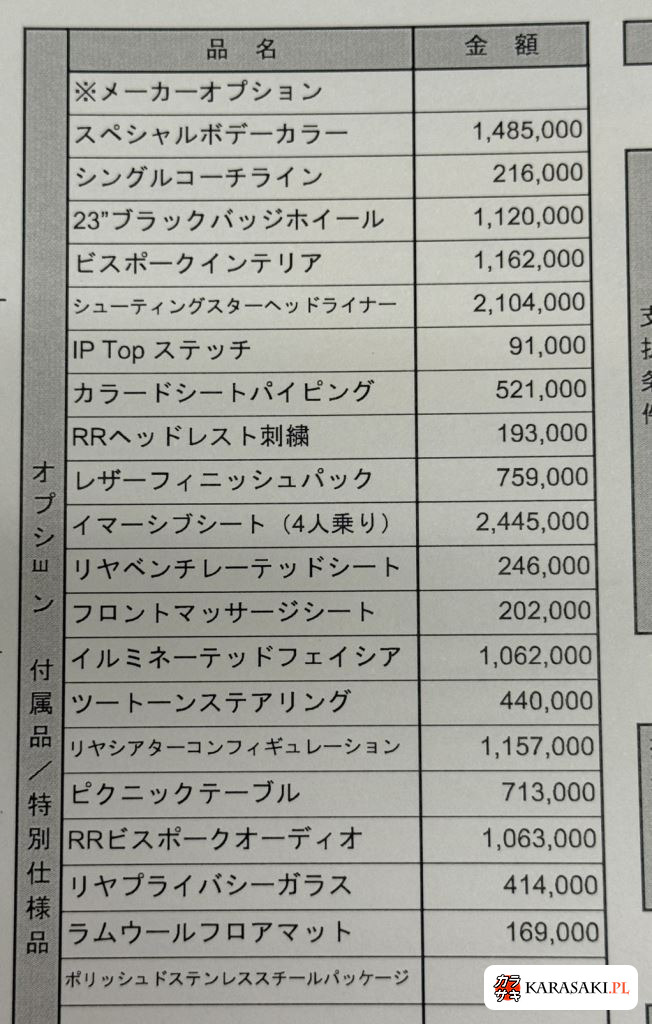 品名 金額
※メーカーオプション
スペシャルボデーカラー 1,485,000
シングルコーチライン 216,000
23”ブラックバッジホイール 1,120,000
ビスポークインテリア 1,162,000
シューティングスターヘッドライナー 2,104,000
IP Top ステッチ 91,000
カラードシートパイピング 521,000
RRヘッドレスト刺繍 193,000
レザーフィニッシュパック 759,000
イマーシブシート（4人乗り） 2,445,000
リヤベンチレーテッドシート 246,000
フロントマッサージシート 202,000
イルミネーテッドフェイシア 1,062,000
ツートーンステアリング 440,000
リヤシアターコンフィギュレーション 1,157,000
ピクニックテーブル 713,000
RRビスポークオーディオ 1,063,000
リヤプライバシーガラス 414,000
ラムウールフロアマット 169,000
ポリッシュドステンレススチールパッケージ
オプション 付属品／特別仕様品
カラサキ KARASAKI.PL